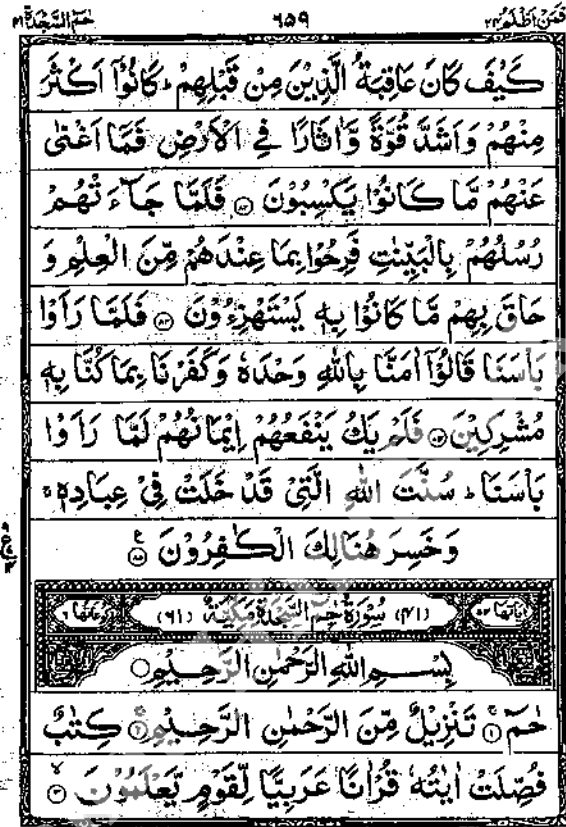 فَمَنْ اَظْلَمُ ٢٤ ٦٥٩ حٰمٓ السَّجْدَة ٤١
كَيْفَ كَانَ عَاقِبَةُ الَّذِيْنَ مِنْ قَبْلِهِمْ ؕ كَانُوْۤا اَكْثَرَ
مِنْهُمْ وَاَشَدَّ قُوَّةً وَّاٰثَارًا فِى الْاَرْضِ فَمَاۤ اَغْنٰى
عَنْهُمْ مَّا كَانُوْا يَكْسِبُوْنَ ۝٨٢ فَلَمَّا جَآءَتْهُمْ
رُسُلُهُمْ بِالْبَيِّنٰتِ فَرِحُوْا بِمَا عِنْدَهُمْ مِّنَ الْعِلْمِ وَ
حَاقَ بِهِمْ مَّا كَانُوْا بِهٖ يَسْتَهْزِءُوْنَ ۝٨٣ فَلَمَّا رَاَوْا
بَاْسَنَا قَالُوْۤا اٰمَنَّا بِاللّٰهِ وَحْدَهٗ وَكَفَرْنَا بِمَا كُنَّا بِهٖ
مُشْرِكِيْنَ ۝٨٤ فَلَمْ يَكُ يَنْفَعُهُمْ اِيْمَانُهُمْ لَمَّا رَاَوْا
بَاْسَنَا ؕ سُنَّتَ اللّٰهِ الَّتِىْ قَدْ خَلَتْ فِىْ عِبَادِهٖ ۚ
وَخَسِرَ هُنَالِكَ الْكٰفِرُوْنَ ۝٨٥
اٰيَاتُهَا ٥٤ (٤١) سُوْرَةُ حٰمٓ السَّجْدَةِ مَكِّيَّةٌ (٦١) رُكُوْعَاتُهَا ٦
بِسْمِ اللّٰهِ الرَّحْمٰنِ الرَّحِيْمِ ۝
حٰمٓ ۝١ تَنْزِيْلٌ مِّنَ الرَّحْمٰنِ الرَّحِيْمِ ۝٢ كِتٰبٌ
فُصِّلَتْ اٰيٰتُهٗ قُرْاٰنًا عَرَبِيًّا لِّقَوْمٍ يَّعْلَمُوْنَ ۝٣